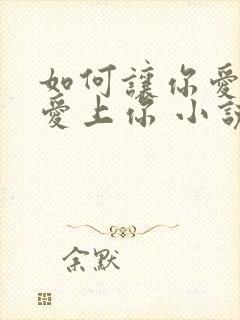 如何讓你愛
愛上你 小說
余默